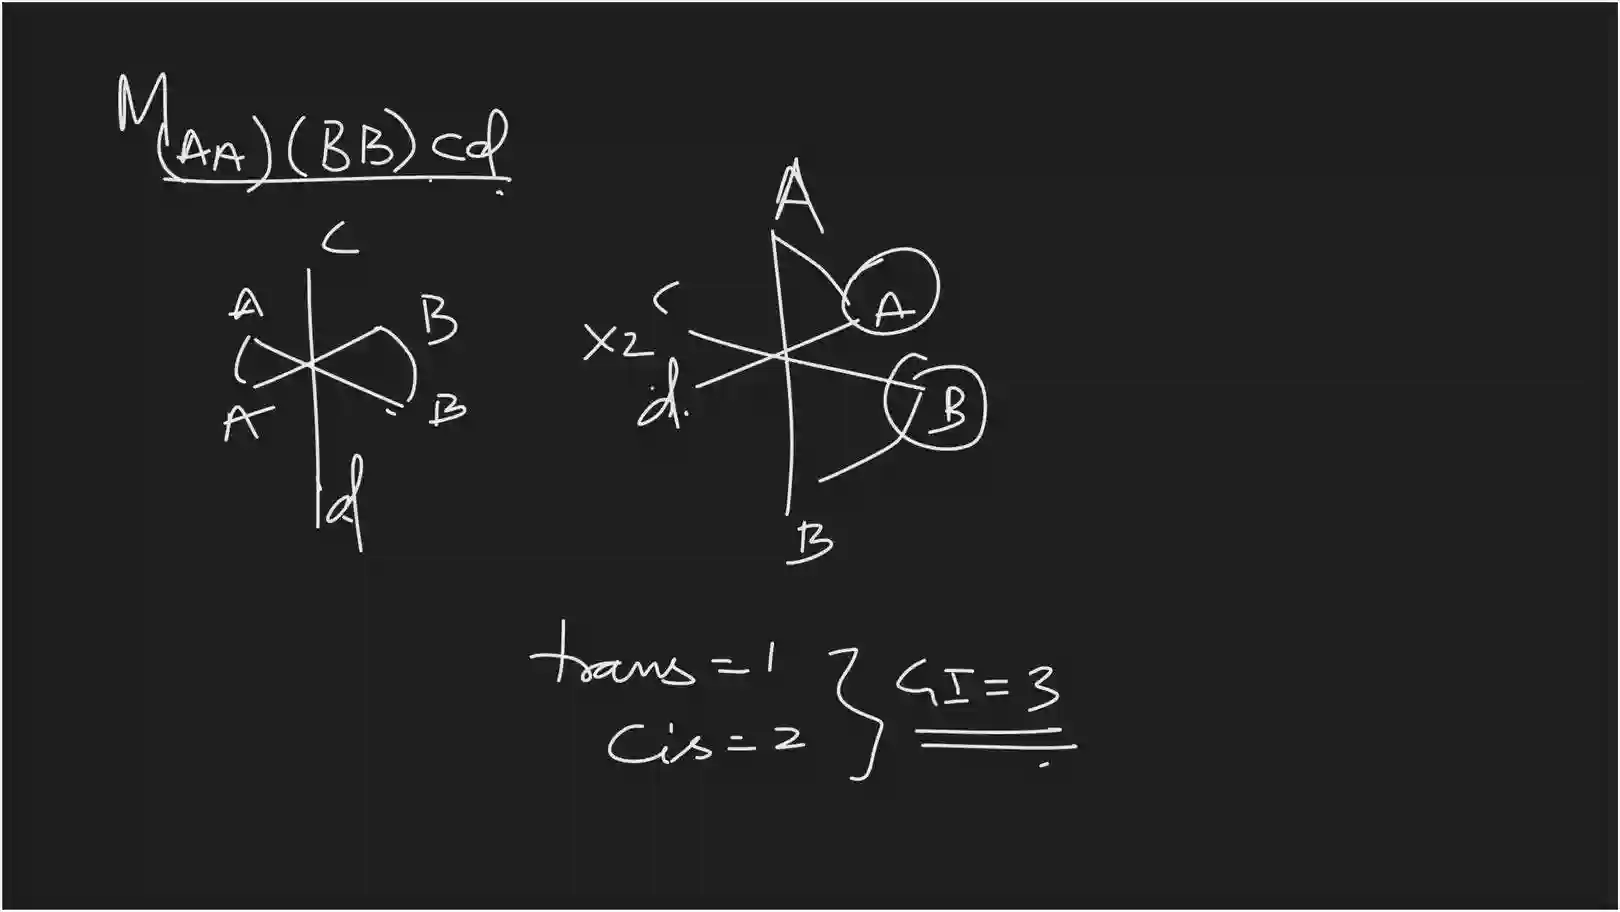 M(AA)(BB)cd
C
A B
A B
d
A
C A
X2
d. B
B
trans = 1
Cis = 2
GI = 3